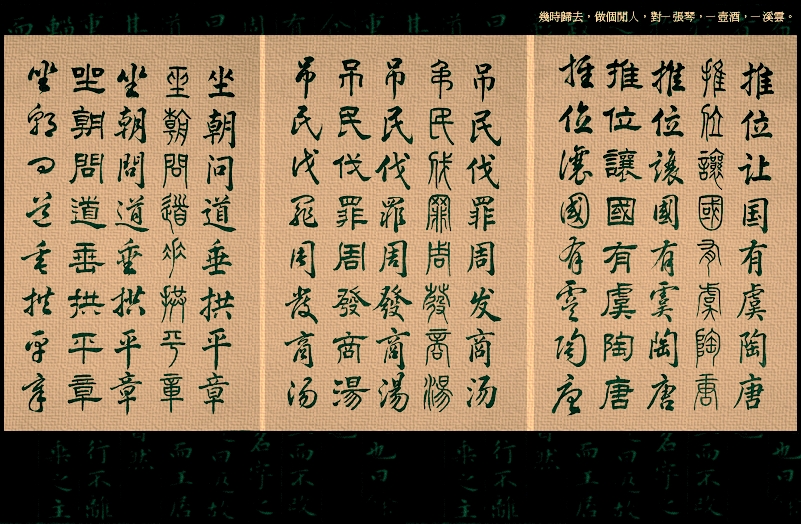 幾時歸去，做個閒人，對一張琴，一壺酒，一溪雲。
推位让国有虞陶唐
推位讓國有虞陶唐
推位讓國有虞陶唐
推位讓國有虞陶唐
推位讓國有虞陶唐
吊民伐罪周发商汤
弔民伐罪周發商湯
吊民伐罪周發商湯
吊民伐罪周發商湯
吊民伐罪周發商湯
坐朝问道垂拱平章
坐朝問道垂拱平章
坐朝問道垂拱平章
坐朝問道垂拱平章
坐朝問道垂拱平章